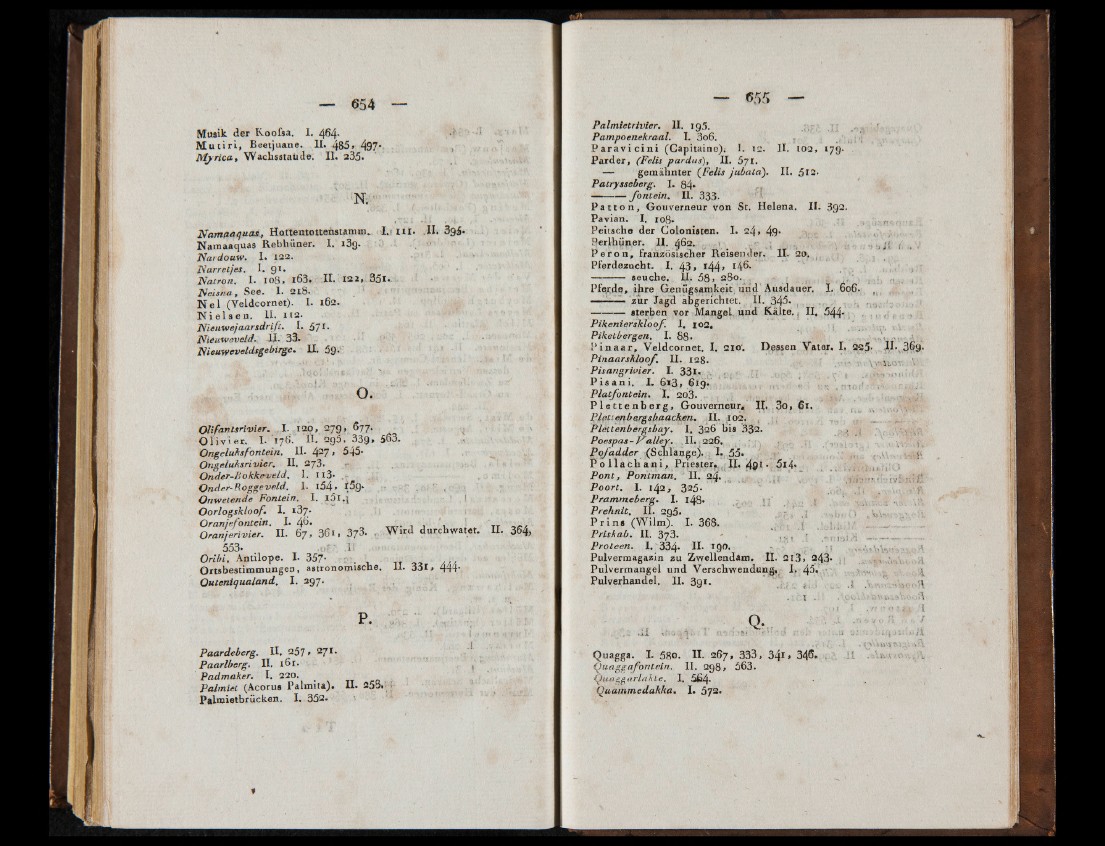 — 654 —
Musik der Koofsa. I. 464.
Mutiri, Beetjuane. II. 485, 497.
Myrica, Wachsstaude. II. 235.
N.
Namaaquas, Hottentottenstamm. I. 111. II. 395.
Namaaquas Rebhüner. I. 139.
Nardouw. I. 122.
Narretjes. I. 91.
Natron. I. 108, 163. II. 122, 351.
Neisna, See. I. 218.
Nel (Veldcornet). I. 162.
Nielsen. II. 112.
Nieuwejaarsdrift. I. 571.
Nieuweveld. II. 33.
Nieuweveldsgebirge. II. 59.
O.
Olifantsrivier. I. 120, 279, 677.
Olivier. I. 176. II. 295, 339, 563.
Ongeluksfontein. II. 427, 545.
Ongeluksrivier. II. 273.
Onder-Bokkeveld. I. 113.
Onder-Roggeveld. I. 154, 159.
Onwetende Fontein. I. 151.
Oorlogskloof. I. 137.
Oranjefontein. I. 46.
Oranjerivier. II. 67, 361, 373. Wird durchwatet. II. 364,
553.
Oribi, Antilope. I. 357.
Ortsbestimmungen, astronomische. II. 331, 444.
Outeniqualand. I. 297.
P.
Paardeberg. II. 257, 271.
Paarlberg. II. 161.
Padmaker. I. 220.
Palmiet (Acorus Palmita). II. 258.
Palmietbrücken. I. 352.
— 655 —
Palmietrivier. II. 195.
Pampoenekraal. I. 306.
Paravicini (Capitaine). I. 12. II. 102, 179.
Parder, (Felis pardus), II. 571.
— gemähnter (Felis jubata). II. 512.
Patrysseberg. I. 84.
——— fontein. II. 333.
Patton, Gouverneur von St. Helena. II. 392.
Pavian. I. 108.
Peitsche der Colonisten. I. 24, 49.
Perlhüner. II. 462.
Peron, französischer Reisender. II. 20.
Pferdezucht. I. 43, 144, 146.
——— seuche. II. 58, 280.
Pferde, ihre Genügsamkeit und Ausdauer. I. 606.
——— zur Jagd abgerichtet. II. 345.
——— sterben vor Mangel und Kälte. II. 544.
Pikenierskloof. I. 102.
Piketbergen. I. 88.
Pinaar, Veldcornet. I. 210. Dessen Vater. I. 225. II. 369.
Pinaarskloof. II. 128.
Pisangrivier. I. 331.
Pisani. I. 613, 619.
Platfontein. I. 203.
Plettenberg, Gouverneur. II. 30, 61.
Plettenbergsbaacken. II. 102.
Plettenbergsbay. I. 326 bis 332.
Poespas-Valley. II. 226.
Pofadder (Schlange). I. 55.
Pollachani, Priester. II. 491. 514.
Pont, Pontman. II. 24.
Poort. I. 142, 325.
Prammeberg. I. 148.
Prehnit. II. 295.
Prins (Wilm). I. 368.
Priskab. II. 373.
Proteen. I. 334. II. 190.
Pulvermagazin zu Zwellendam. II. 213, 243.
Pulvermangel und Verschwendung. I. 45.
Pulverhandel. II. 391.
Q.
Quagga. I. 580. II. 267, 333, 341, 346.
Quaggafontein. II. 298, 563.
Quaggarlakte. I. 564.
Quammedakka. I. 572.